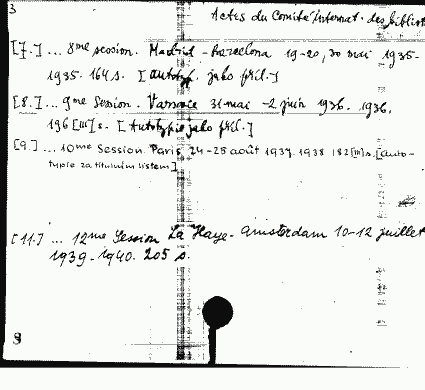 3
Actes du Comité internat. des biblioth
[7.] ... 8me session. Madrid - Barcelona 19-20, 30 mai 1935-
1935. 164 s. [Autotyp. jako příl.]
[8.] ... 9me Session. Varsovie 31 mai - 2 juin 1936. 1936.
196 [III] s. [Autotypie jako příl.]
[9.] ... 10me Session. Paris 24-25 août 1937. 1938 182 [III] s. [auto-
typie za titulním listem]
[11.] ... 12me Session La Haye - Amsterdam 10-12 juillet
1939. 1940. 205 s.
8